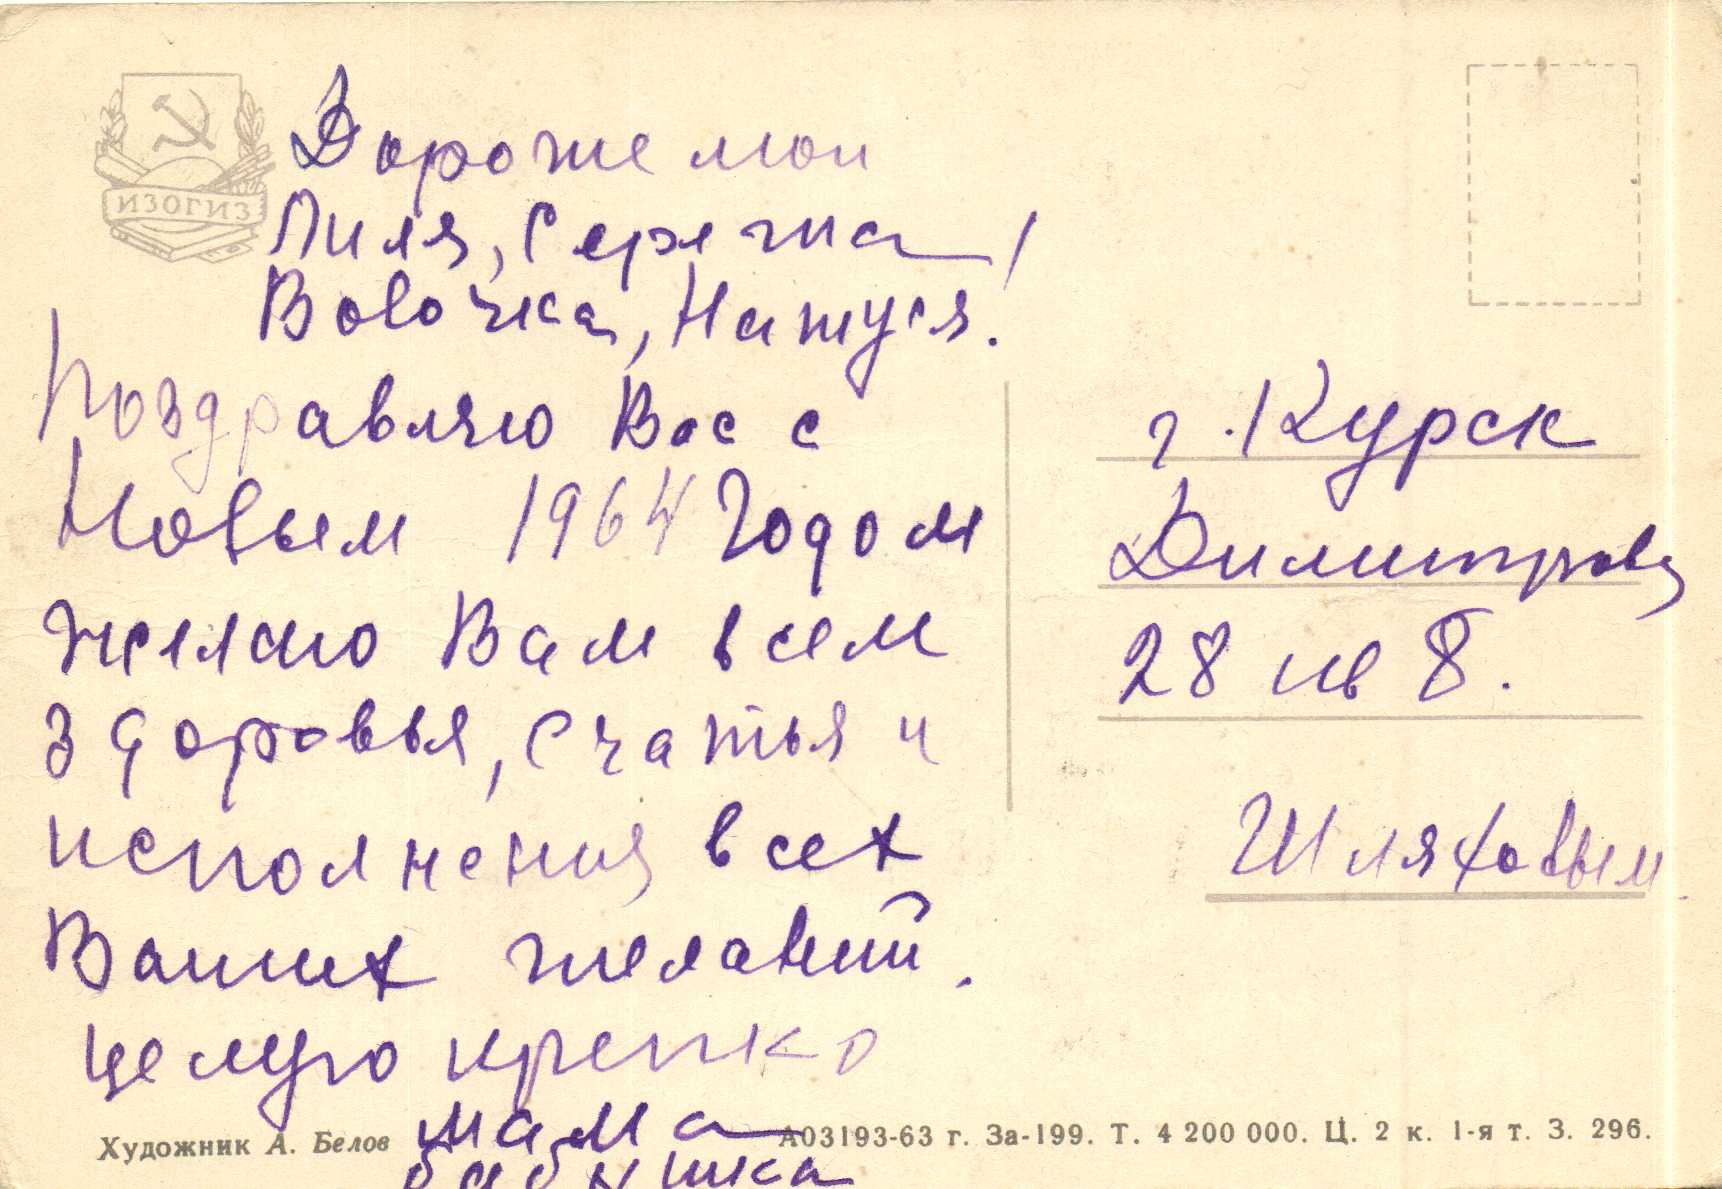 ИЗОГИЗ
Дороже мои
Лиля, Сережа!
Вовочка, Натуся!
Поздравляю Вас с
Новым 1964 Годом
желаю Вам всем
здоровья, счастья и
исполнения всех
Ваших желаний.
целую крепко
мама
бабушка
г. Курск
Димитрова
28 кв 8.
Шляховым
Художник А. Белов
А03193-63 г. За-199. Т. 4 200 000. Ц. 2 к. 1-я т. З. 296.